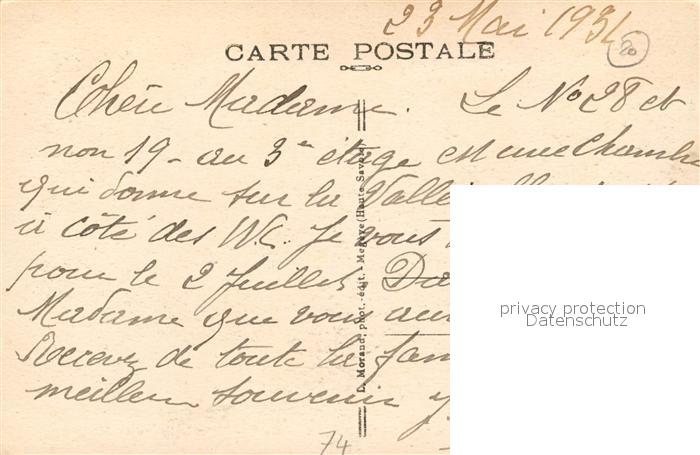 23 Mai 193
20
CARTE POSTALE
Chère Madame. Le No 28 et
non 19 - au 3e étage est une chambre
qui donne sur la Vallée
à côté des WC. Je vous
pour le 2 Juillet.
Madame que vous
Recevez de toute la fam
meilleur souvenir
L. Morand, phot.-édit. - Megève (Haute Savoie)
74
privacy protection
Datenschutz